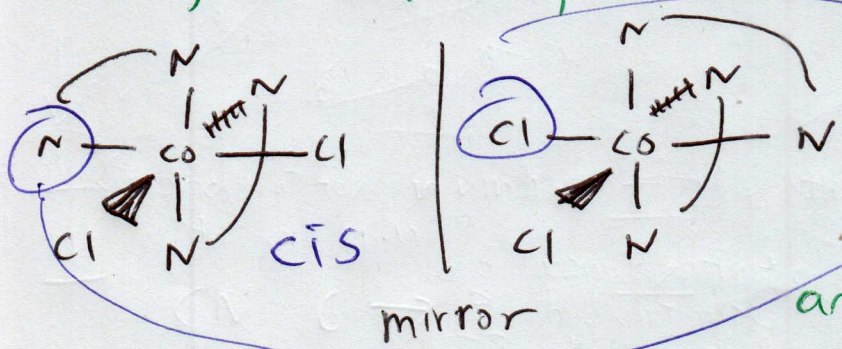 N N
N Co Cl
Cl N cis
N N
Cl Co N
Cl N
mirror